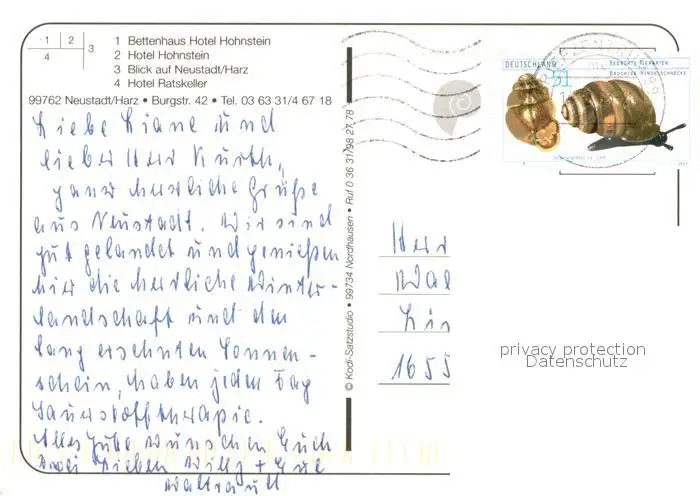 1 2
4 3
1 Bettenhaus Hotel Hohnstein
2 Hotel Hohnstein
3 Blick auf Neustadt/Harz
4 Hotel Ratskeller
99762 Neustadt/Harz • Burgstr. 42 • Tel. 03 63 31/4 67 18
Liebe Liane und
lieber Herr Kurth,
ganz herrliche Grüße
aus Neustadt. Wir sind
gut gelandet und genießen
hier die herrliche Winter-
landschaft und den
lang ersehnten Sonnen-
schein, haben jeden Tag
Sauerstofftherapie.
Alles Gute wünschen Euch
Willy +
Waltraut
© Kopf-Satzstudio • 99734 Nordhausen • Ruf 0 36 31/98 27 78
DEUTSCHLAND
51
BEDROHTE TIERARTEN
BAUCHIGE WINDELSCHNECKE
Herr
Wal
1655
privacy protection
Datenschutz